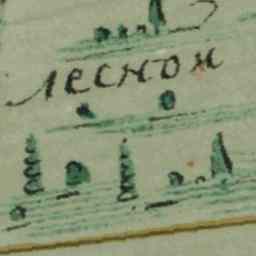 лесной